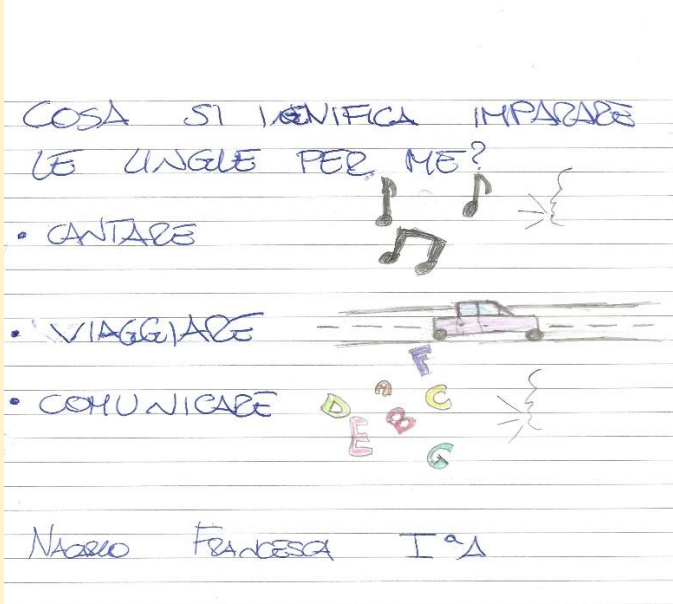 COSA SIGNIFICA IMPARARE
LE LINGUE PER ME?
• CANTARE
• VIAGGIARE
• COMUNICARE
F
A C
D B
E
G
FRANCESCA IªA